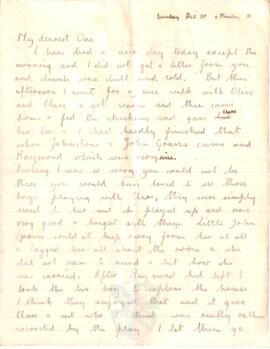 Sunday Oct 30 & Monday 11
My dearest One
I have had a nice day today except the
morning and I did not get a letter from you
and church was dull and cold. But this
afternoon I went for a nice walk with Olive
and Clare & got warm and then came
home & fed the chickens and gave
her tea & I had hardly finished that
when Johnstone & John came and
Raymond which was very nice.
Darling I was so sorry you could not be
there you would have loved to see those
boys playing with Clare, they were simply
sweet to her and she played up and was
very good & bright with them. Little John
could not keep away from her at all
& lugged her all about the room & she
did not seem to mind a bit how she
was carried. After Raymond had left I
took the two boys to explore the house
I think they enjoyed that and it gave
Clare a rest who I think was really rather
exhausted by the play. I let them go